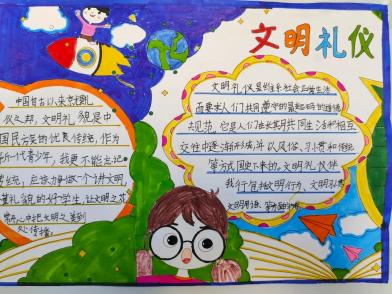 文明礼仪
中国自古以来就是礼
仪之邦，文明礼貌是中
国民族的优良传统，作为
新一代青少年，我更不能忘记
传统，应该力争做一个讲文明、
懂礼貌的好学生，让文明之花
常开心中把文明之美到
处传播。
文明礼仪是维系社会正常生活
而要求人们共同遵守的最起码的道德
规范，它是人们在长期共同生活和相互
交往中逐渐形成，并以风俗、习惯和传统
等方式固定下来的。文明礼仪伴
我行包括文明行为、文明习惯
文明用语